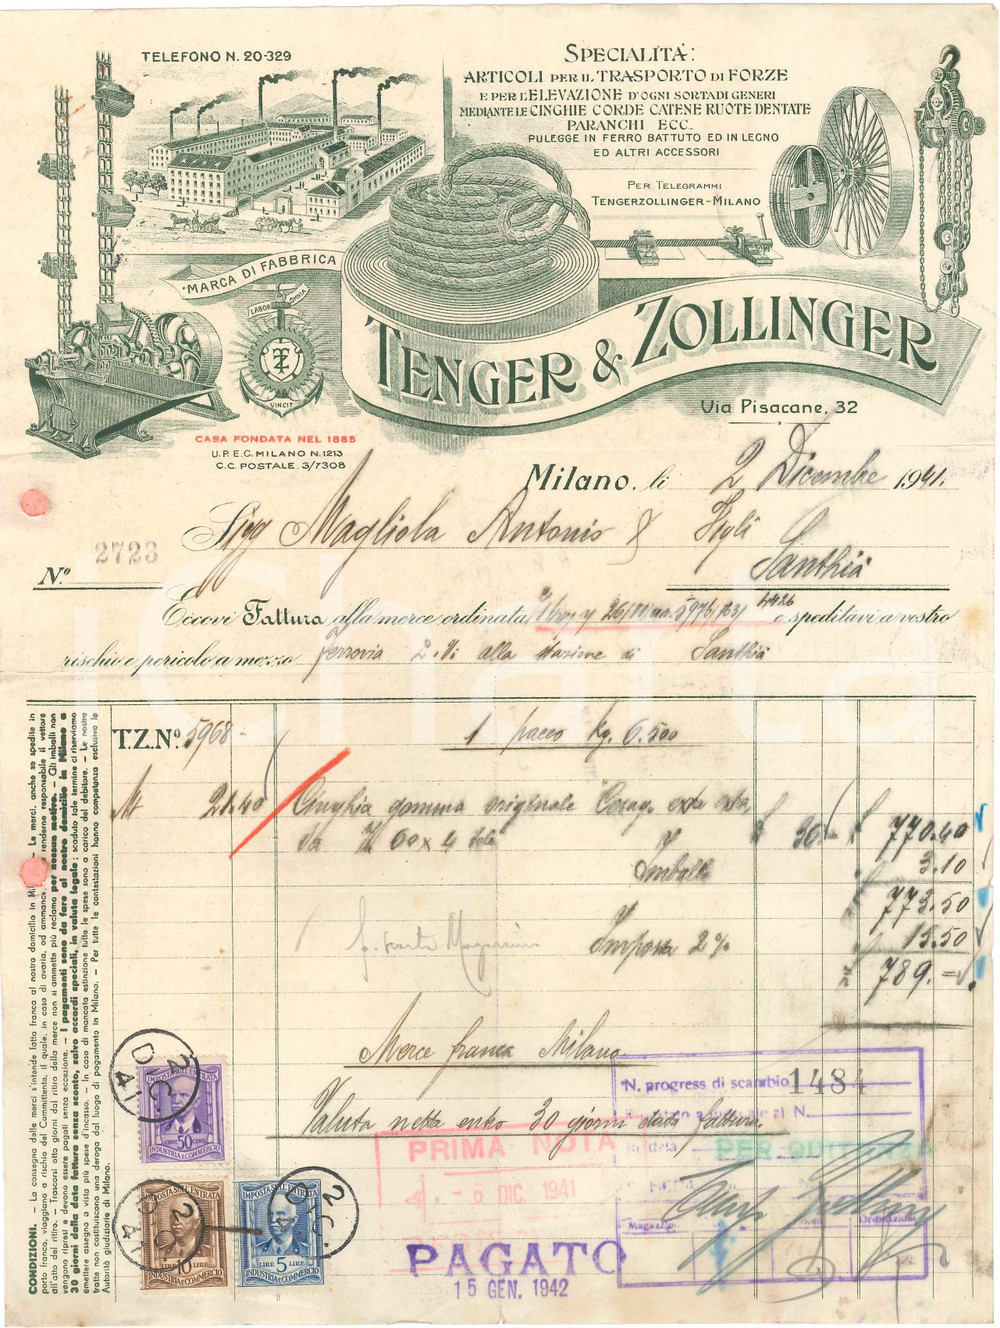 TELEFONO N. 20-329
SPECIALITÀ:
ARTICOLI PER IL TRASPORTO DI FORZE
E PER L'ELEVAZIONE D'OGNI SORTA DI GENERI
MEDIANTE LE CINGHIE CORDE CATENE RUOTE DENTATE
PARANCHI ECC.
PULEGGE IN FERRO BATTUTO ED IN LEGNO
ED ALTRI ACCESSORI
PER TELEGRAMMI
TENGERZOLLINGER-MILANO
MARCA DI FABBRICA
LABOR OMNIA
VINCIT
TENGER & ZOLLINGER
Via Pisacane, 32
CASA FONDATA NEL 1885
U.P.E.C. MILANO N. 1213
C.C. POSTALE 3/7308
Milano, li 2 Dicembre 1941.
Sigg Magliola Antonio & Figli
Santhià
N.º 2723
Eccovi Fattura alla merce ordinata e speditavi a vostro
rischio e pericolo a mezzo ferrovia alla stazione di Santhià
T.Z.Nº 5968
1 pacco kg. 6.500
Mt 21.40 Cinghia gomma originale extra
da 60 x 4 tele 770.40
Imballo 3.10
773.50
Imposta 2% 15.50
789.=
Merce franca Milano.
Valuta netta entro 30 giorni data fattura.
CONDIZIONI. – La consegna delle merci s'intende fatta franca al nostro domicilio in Milano – Le merci, anche se spedite in
porto franco, viaggiano a rischio del Committente, il quale, in caso di avaria, od ammanco, rendere responsabile il vettore
all'atto del ritiro. – Trascorsi otto giorni dal ritiro della merce non si ammette più reclamo per nessun motivo. – Gli imballi non
vengono ripresi e devono essere pagati senza eccezione. – I pagamenti sono da fare al nostro domicilio in Milano a
30 giorni dalla data fattura senza sconto, salvo accordi speciali, in valuta legale; scaduto tale termine ci riserviamo
emettere assegno a vista più spese d'incasso. – In caso di mancata estinzione tutte le spese sono a carico del debitore. – Le nostre
tratte non costituiscono una deroga dal luogo di pagamento in Milano. – Per tutte le contestazioni hanno competenza esclusiva le
Autorità giudiziarie di Milano.
N. progress di scambio 1484
PRIMA NOTA
6 DIC. 1941
Magazz.
Ordinazioni
PAGATO
15 GEN. 1942
IMPOSTA SULL'ENTRATA
CENT. 50 CENT.
INDUSTRIA E COMMERCIO
IMPOSTA SULL'ENTRATA
LIRE 10 LIRE
INDUSTRIA E COMMERCIO
IMPOSTA SULL'ENTRATA
LIRE 5 LIRE
INDUSTRIA E COMMERCIO